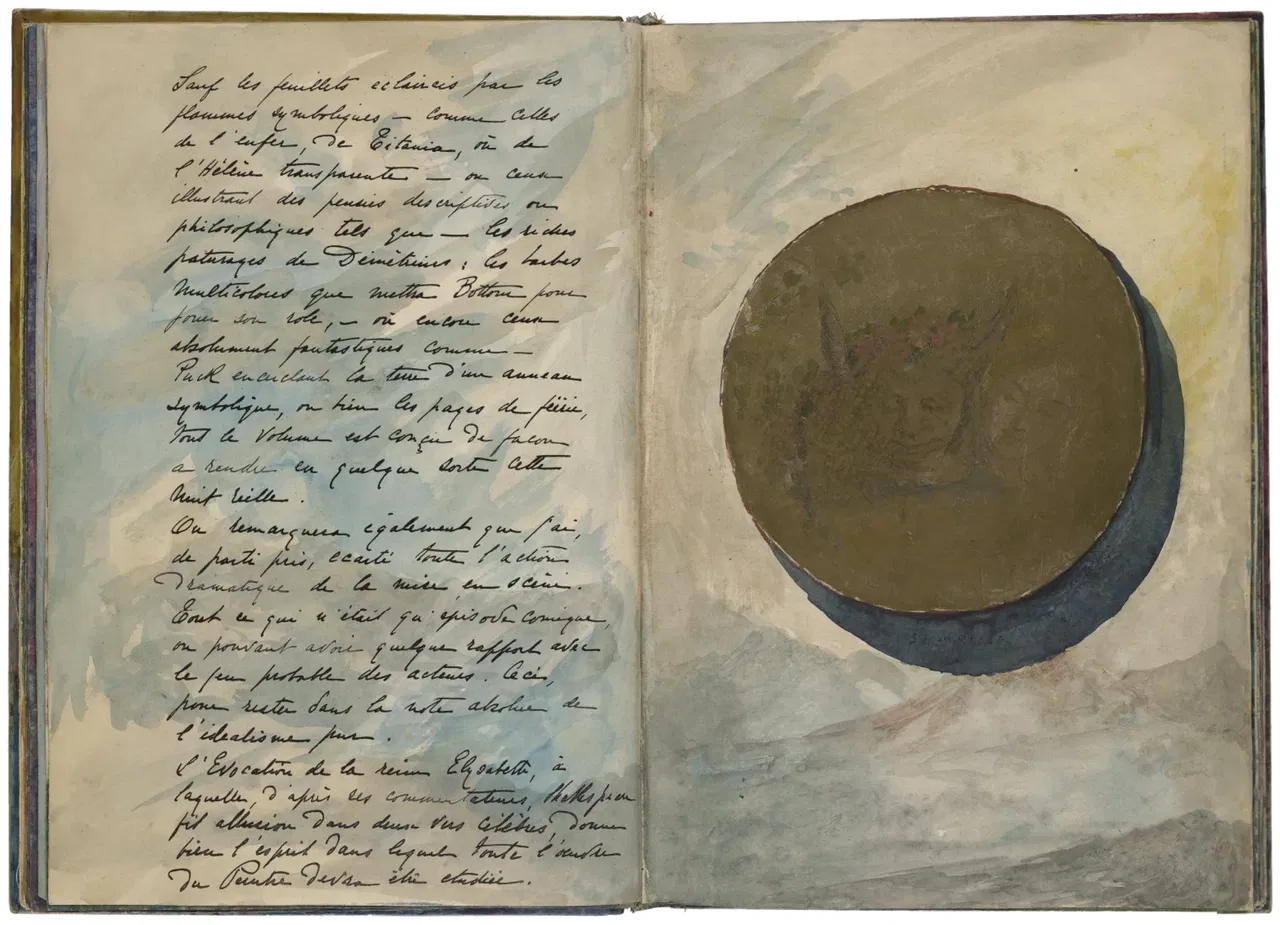 Sauf les feuillets eclaircis par les
flammes symboliques — comme celles
de l'enfer, de Titania, où de
l'Hélène transparente — ou ceux
illustrant des pensées descriptives ou
philosophiques tels que — les riches
paturages de Démétrius; les barbes
multicolores que mettra Bottom pour
jouer son role, — où encore ceux
absolument fantastiques comme —
Puck encerclant la terre d'un anneau
symbolique, ou bien les pages de féérie,
tout le volume est conçu de façon
a rendre en quelque sorte cette
nuit réelle.
On remarquera également que j'ai,
de parti pris, ecarté toute l'action
dramatique de la mise en scène.
Tout ce qui n'était qu'episode comique,
ou pouvant avoir quelque rapport avec
le jeu probable des acteurs. Ceci,
pour rester dans la note absolue de
l'idealisme pur.
L'Evocation de la reine Elysabeth, à
laquelle, d'après ses commentateurs, Shakspeare
fit allusion dans deux vers célèbres, donne
bien l'esprit dans lequel toute l'œuvre
du Peintre devra être etudiée.